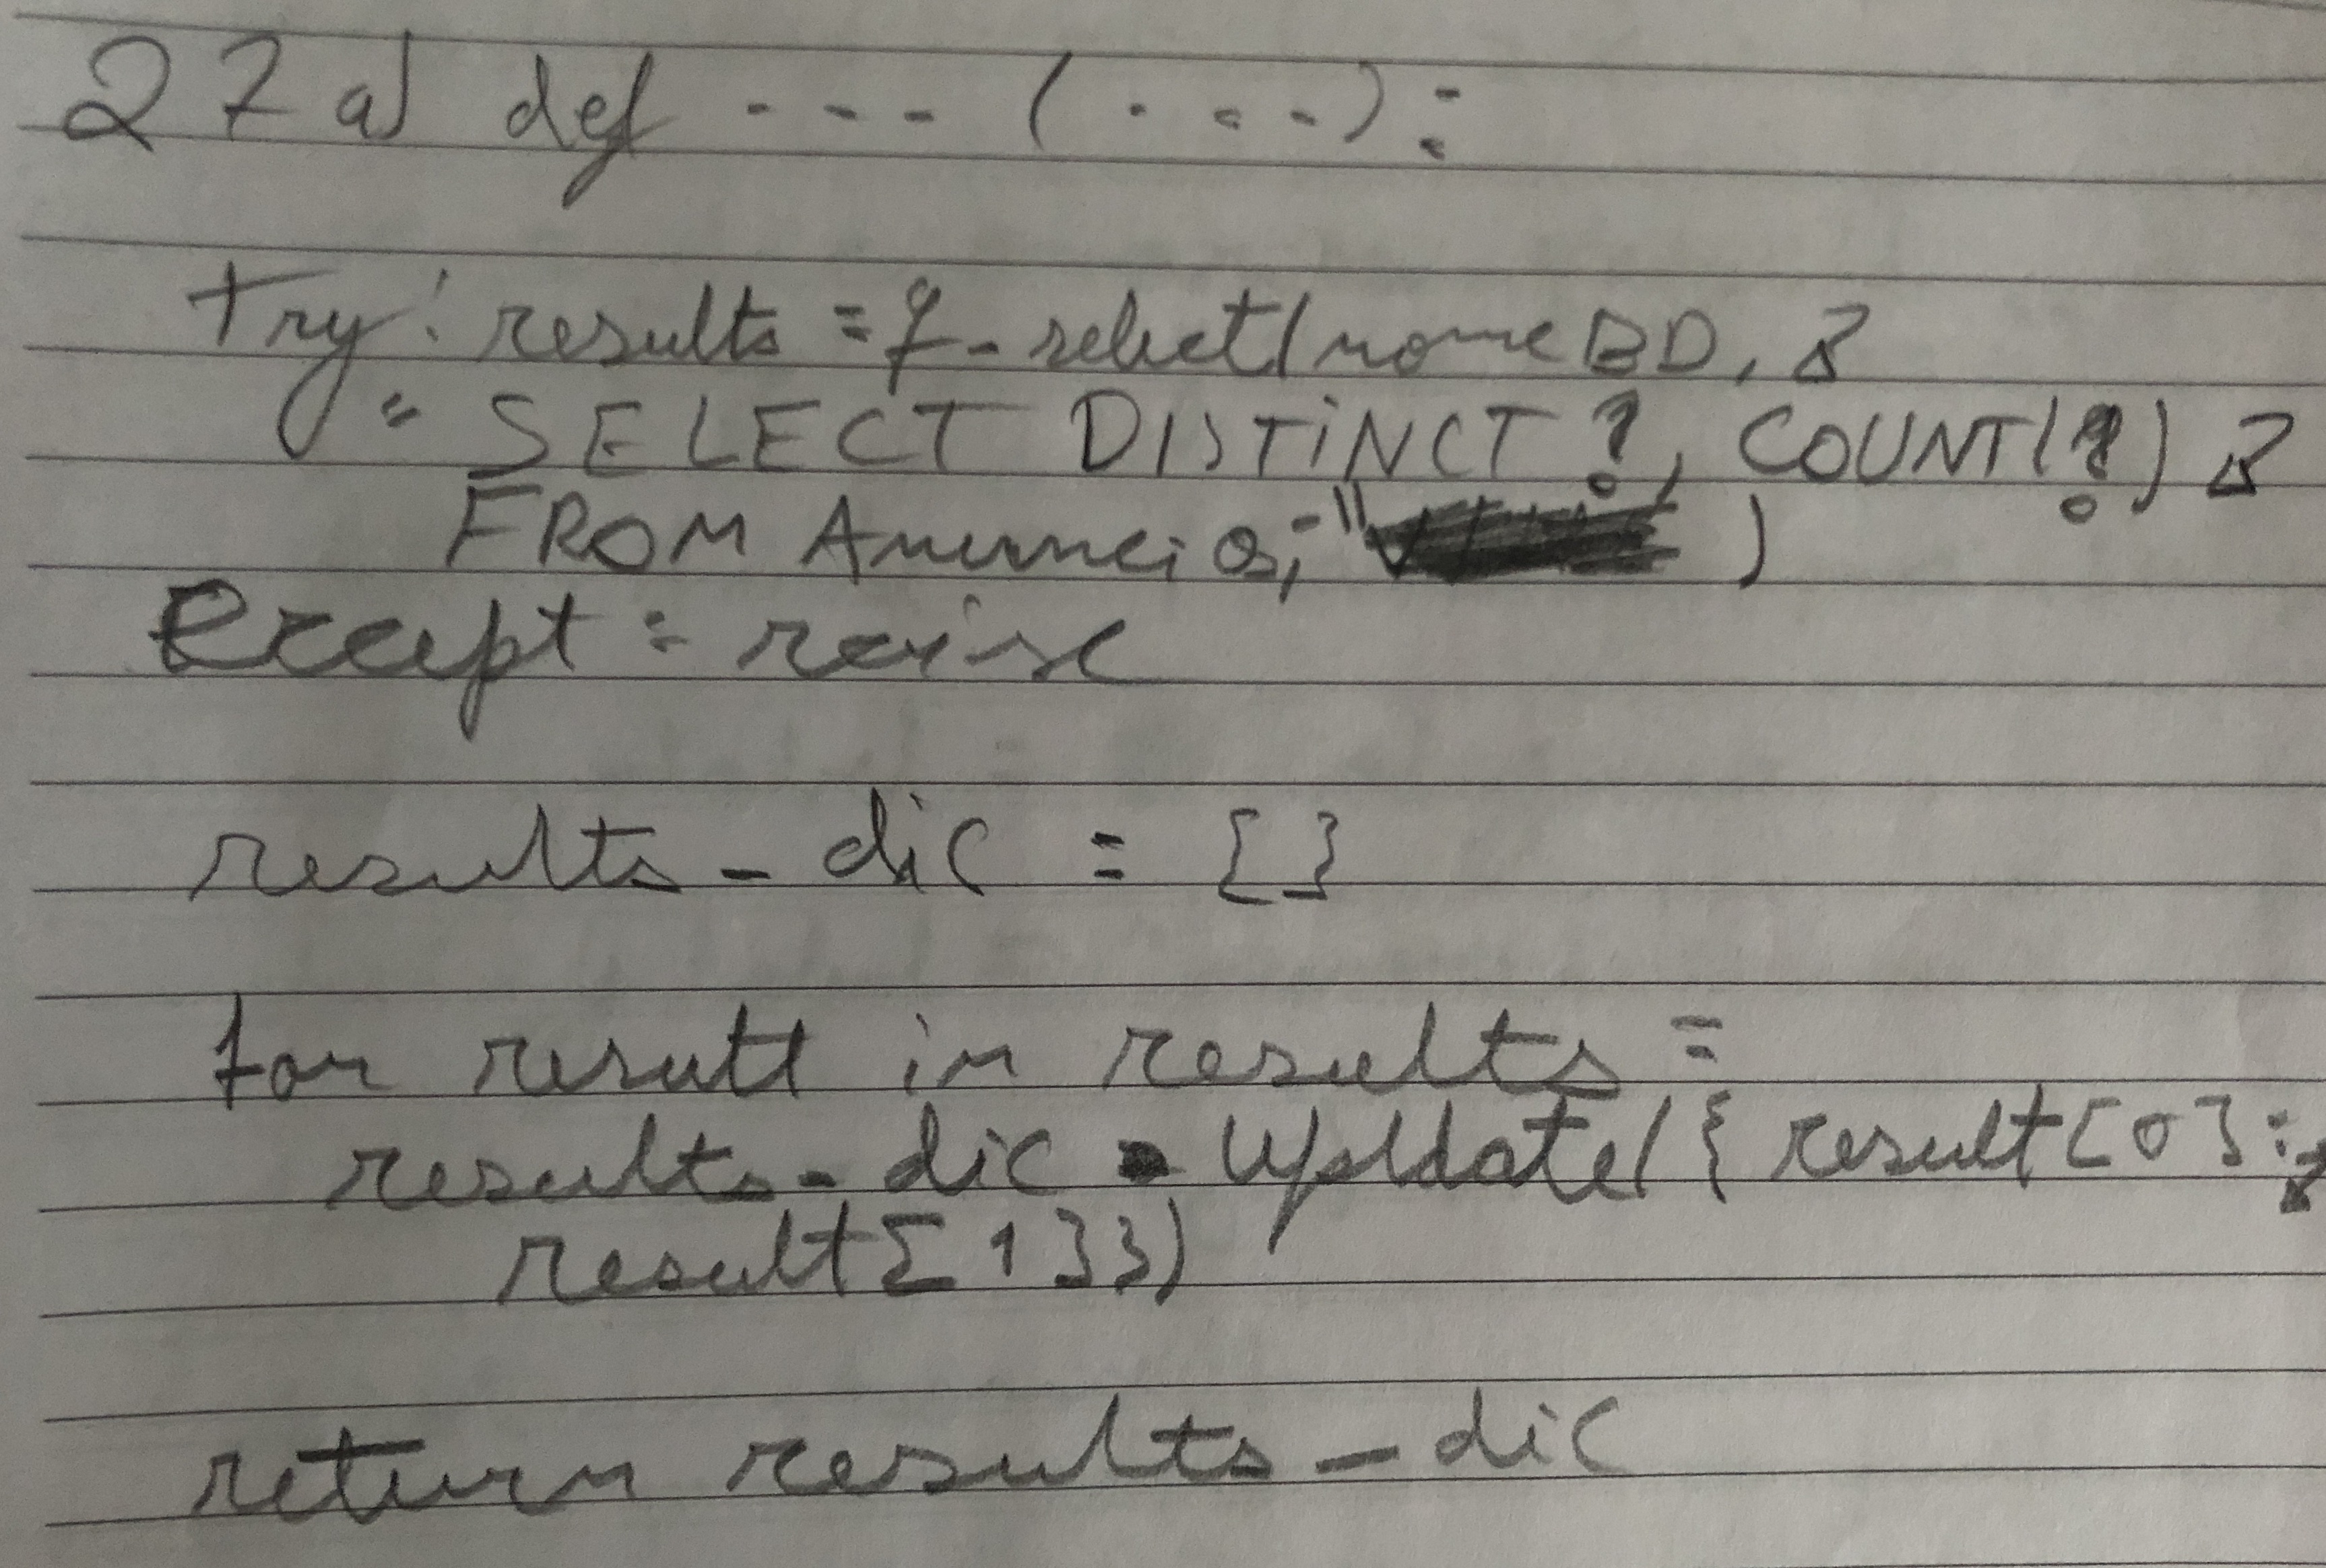 27 a) def ---- (....):
try: results = f_select(nomeBD,
"SELECT DISTINCT ?, COUNT(?)
FROM Anuncios;" )
except: raise
results_dic = []
for result in results:
results_dic.update({result[0]:
result[1]})
return results_dic